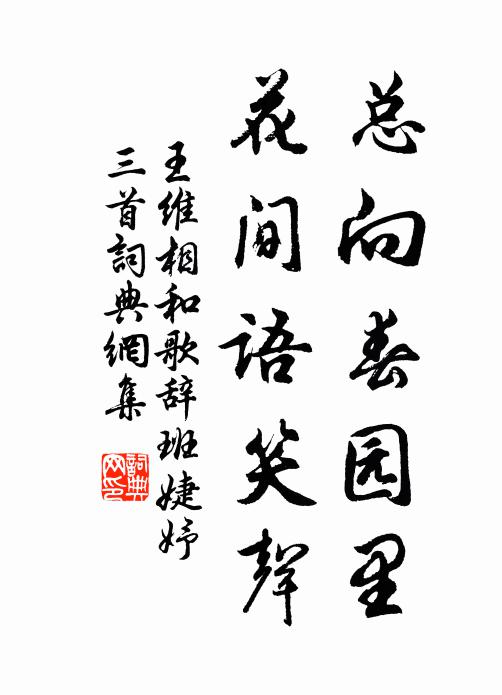 总向春园里
花间语笑聲
王维相和歌辞班婕妤
三首詞典網集
詞典
网印